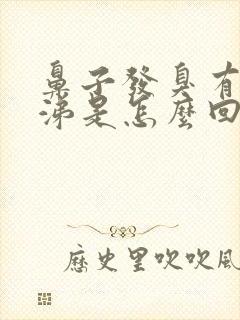 鼻子發臭有
涕是怎麼回
歷史里吹吹風